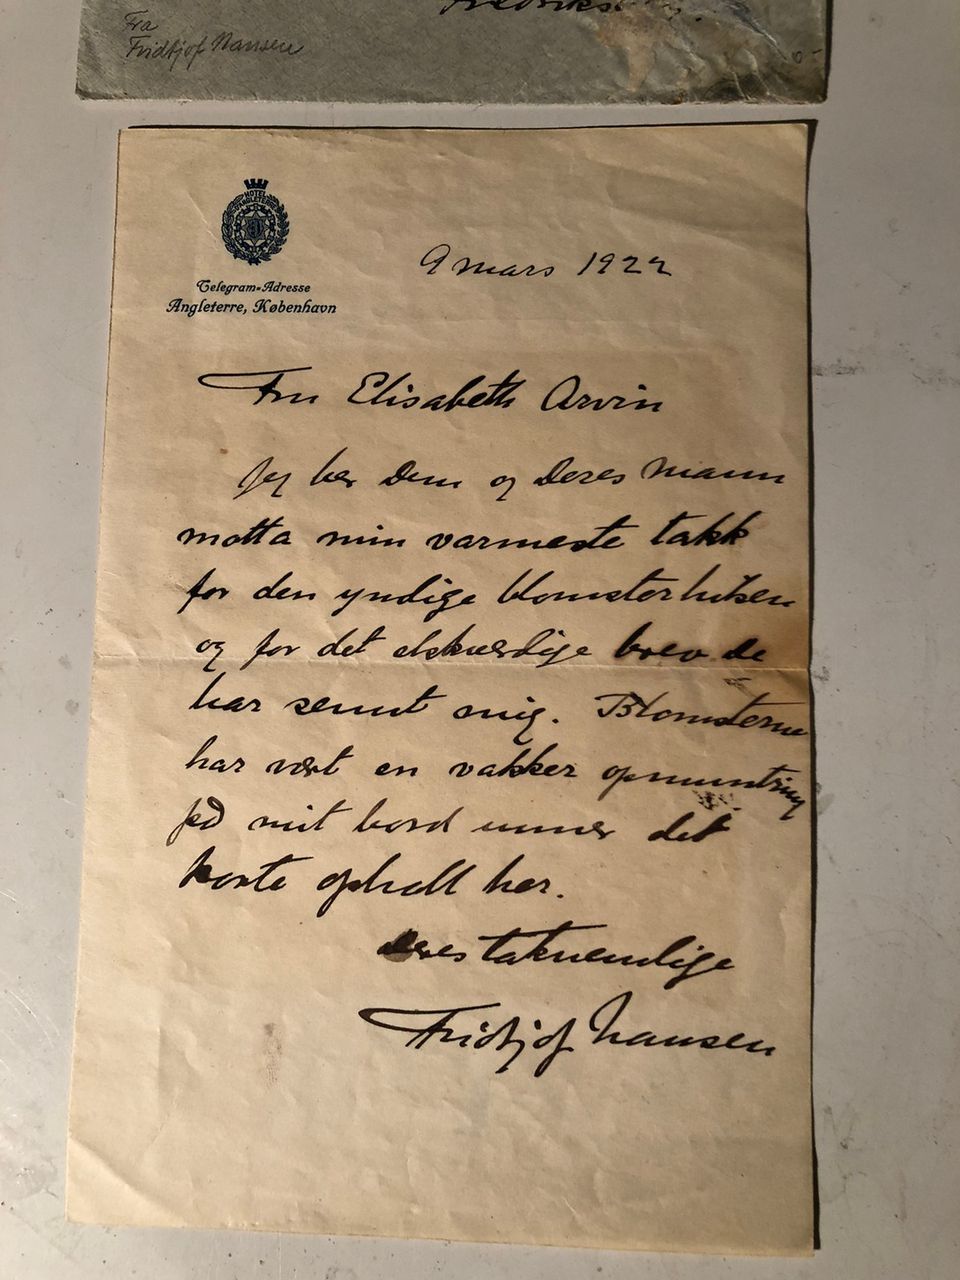 Fra
Fridtjof Nansen
HOTEL
D'ANGLETERRE
Telegram-Adresse
Angleterre, København
9 mars 1922
Fru Elisabeth Arvin
Jeg ber Dem og Deres mann
motta min varmeste takk
for den yndige blomsterhilsen
og for det elskværdige brev De
har sennt mig. Blomsterne
har vært en vakker opmuntring
på mit bord unner det
korte ophold her.
Deres taknemlige
Fridtjof Nansen